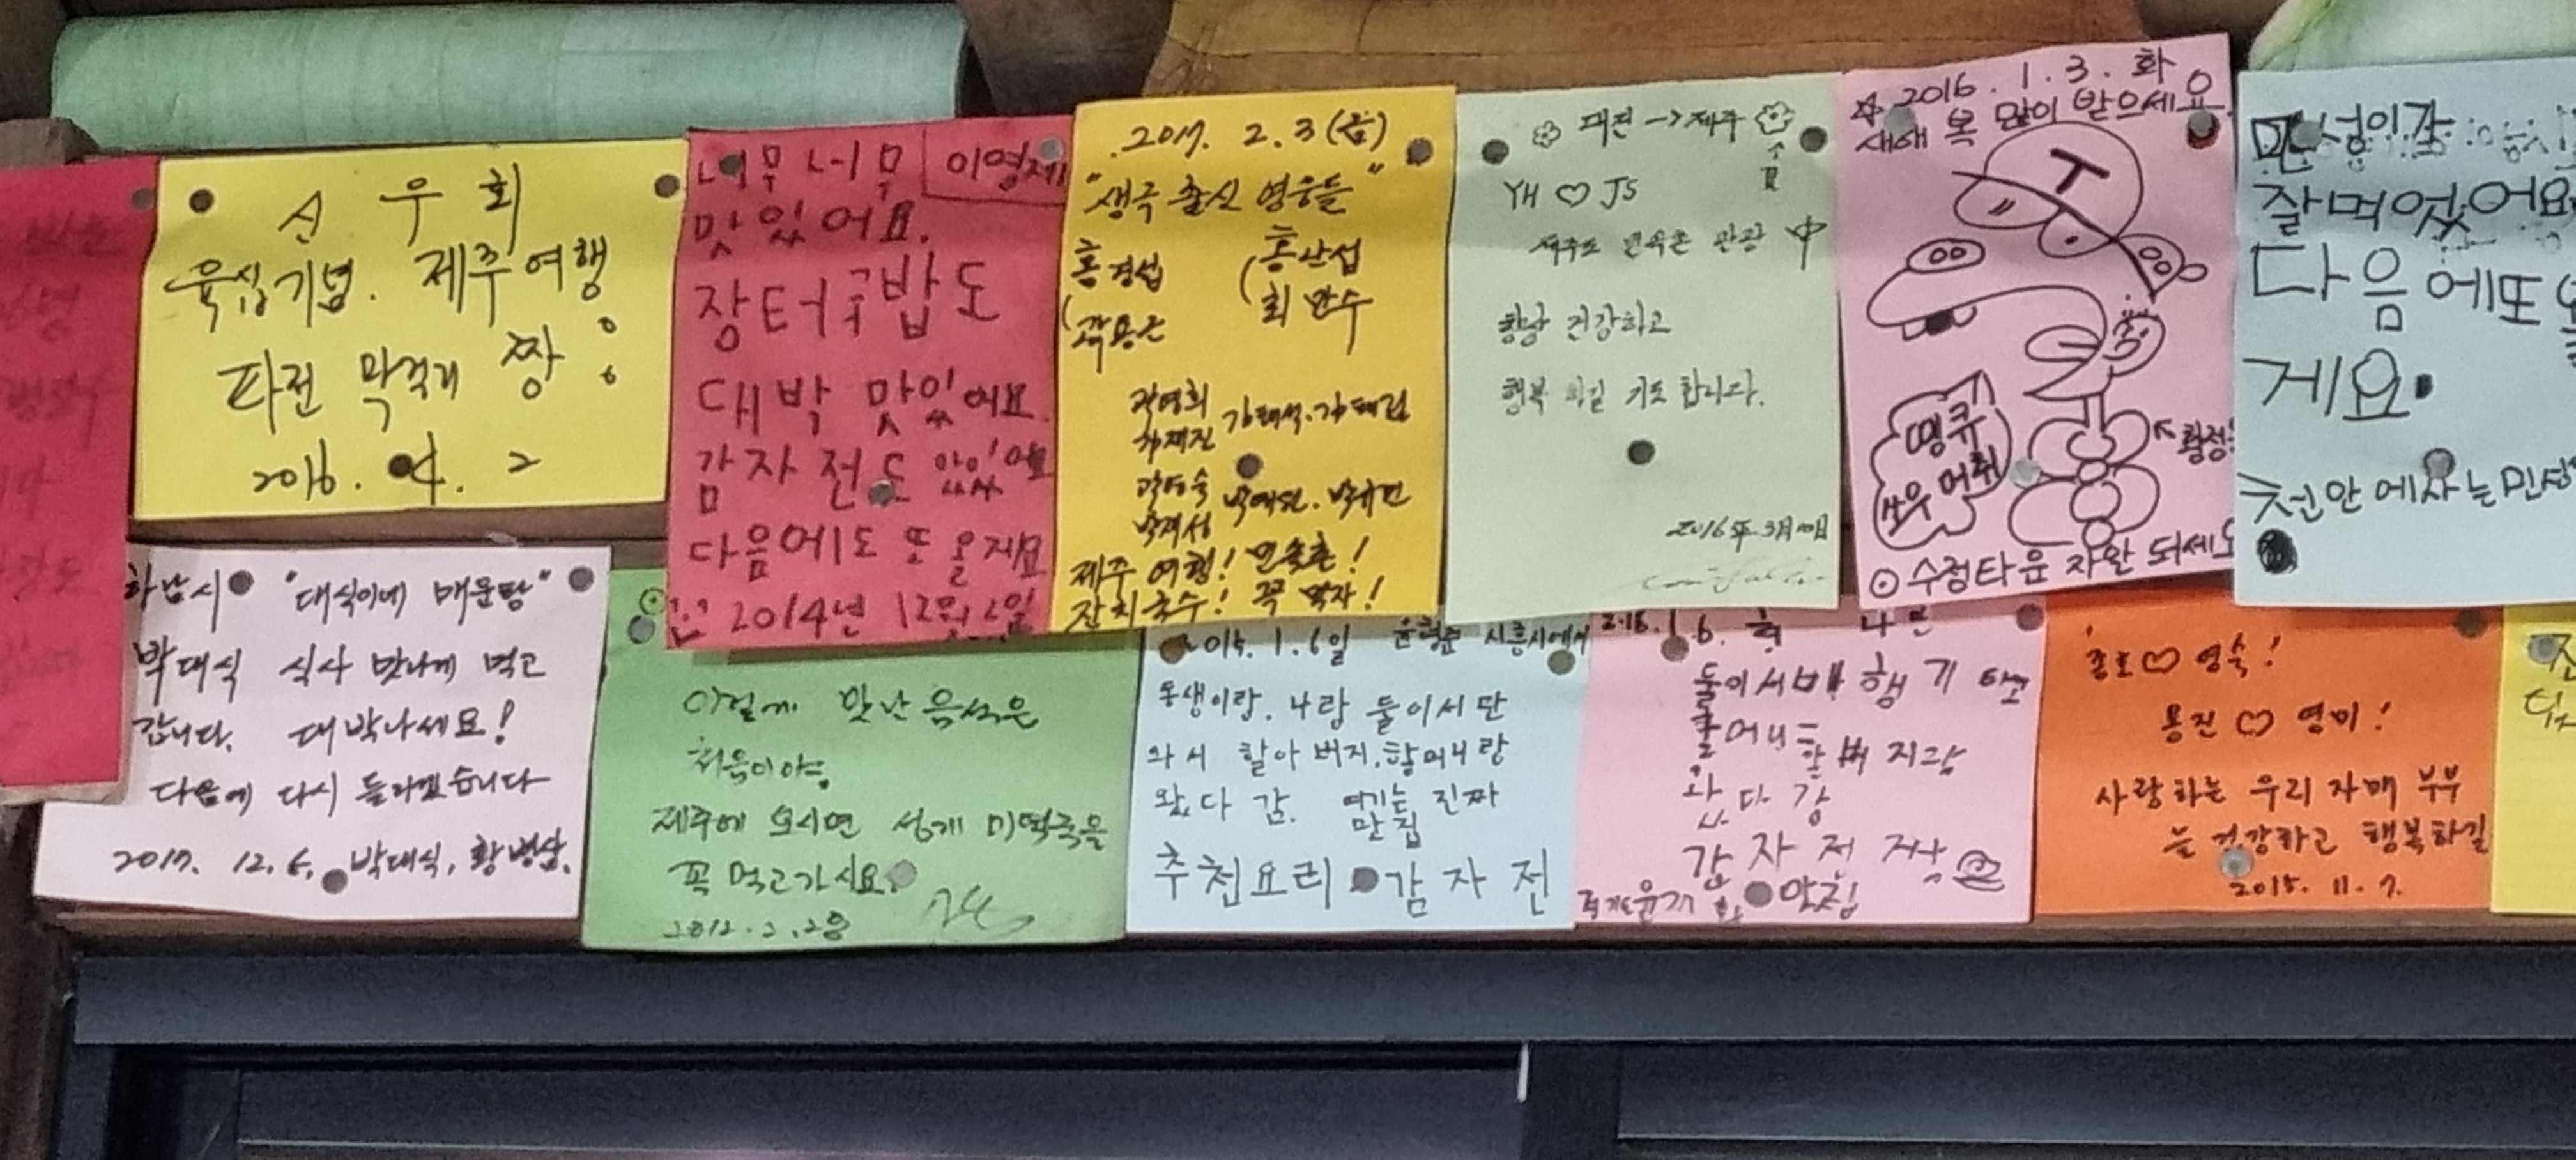 신우회
육십기념. 제주여행
파전 막걸리 짱
2016. 4. 2
너무 너무
이영제
맛있어요.
장터국밥도
대박 맛있어요.
감자전도 맛있어요
다음에도 또 올게요
2014년 12월 2일
2017. 2. 3(금)
"생극 출신 영웅들"
홍경섭
홍산섭
최만수
제주 여행! 민속촌!
잔치국수! 꼭 먹자!
대전→제주
YH ♡ JS
제주도 민속촌 관광 中
항상 건강하고
행복 하길 기도 합니다.
2016年 3月
2016. 1. 3. 화
새해 복 많이 받으세요
T
땡큐
쏘우 머취
수정타운 자완 되세요
민성이가
잘먹었어요
다음에또
게요.
천안에사는민성
하남시 "대식이네 매운탕"
박대식 식사 맛나게 먹고
갑니다. 대박나세요!
다음에 다시 들리겠습니다
2017. 12. 6. 박대식, 황병삼.
이렇게 맛난 음식은
처음이야.
제주에 오시면 성게 미역국을
꼭 먹고가시요.
2012. 2. 28
2015. 1. 6일 윤형준 시흥시에서
동생이랑. 나랑 둘이서 만
와서 할아버지.할머니랑
왔다 감. 여기는 진짜
맛집
추천요리 감자전
2016. 1. 6.
둘이서 비행기 타고
할머니
할버지랑
왔다 강
감자전 짱
맛집
종호♡영숙!
용진♡영미!
사랑하는 우리 자매 부부
는 건강하고 행복하길
2015. 11. 7.